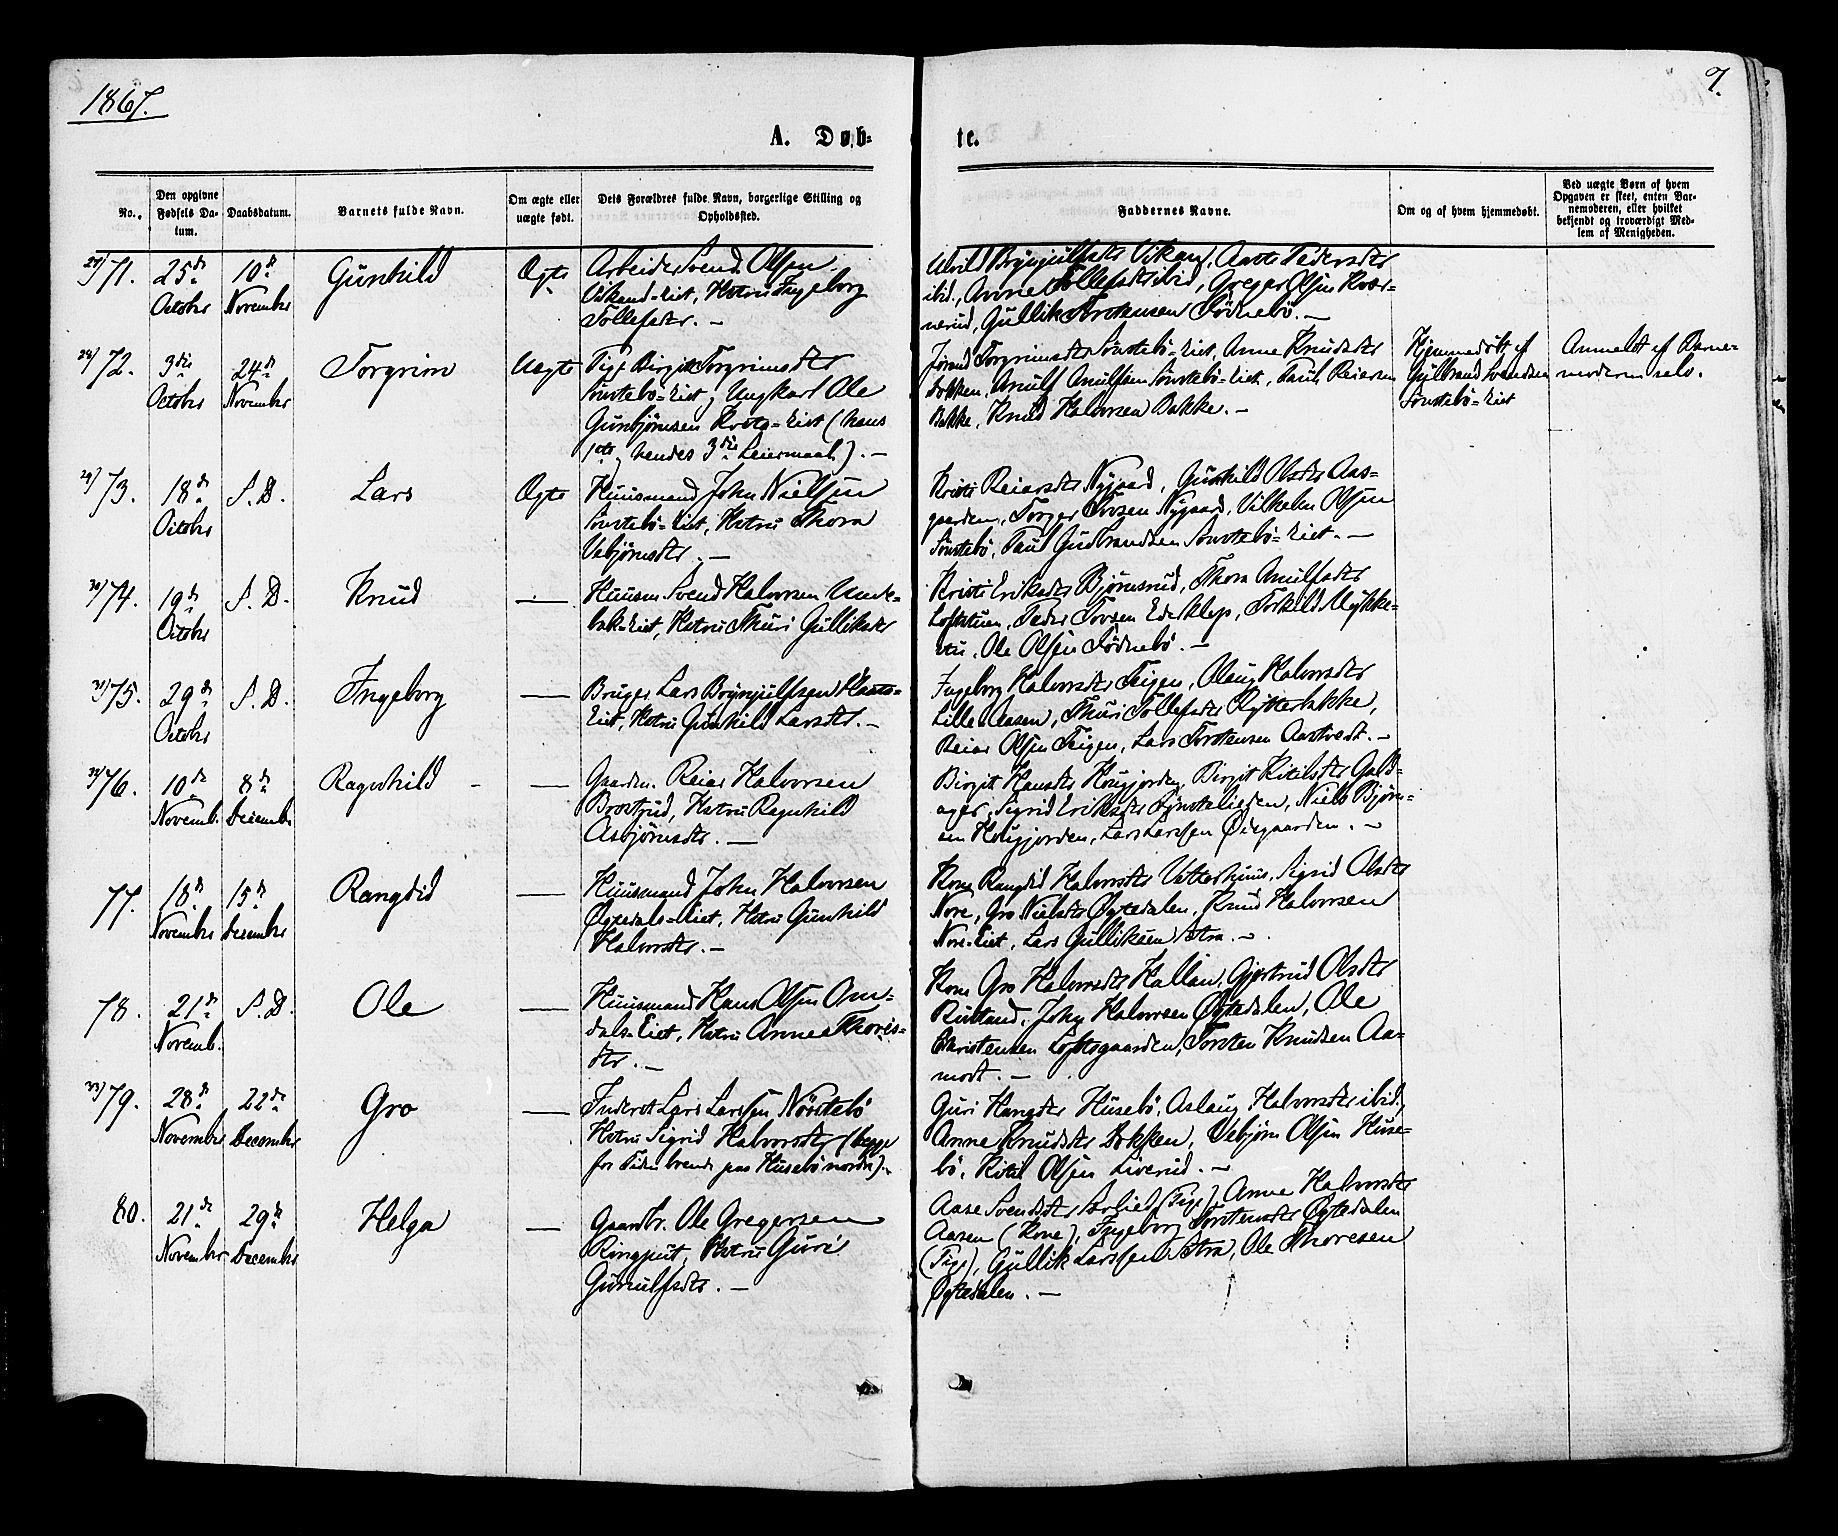 1867.
7.
A. Døb-
te.
No.
Den opgivne Fødsels Da-tum.
Daabsdatum.
Barnets fulde Navn.
Om ægte eller uægte født.
Dets Forældres fulde Navn, borgerlige Stilling og Opholdssted.
Faddernes Navne.
Om og af hvem hjemmedøbt.
Ved uægte Børn af hvem Opgaven er skeet, enten Bar-nemoderen, eller hvilket bekjendt og troværdigt Med-lem af Menigheden.
71.
25de October
10de November
Gunhild
Ægte
Arbeider Svend Olsen
Vikand-Eiet, Hstru Ingeborg
Tollefsdtr. —
Brynjulfsdtr Vikan, Aatte Pedersdtr
ibid., Anne Tollefsdtr ibid, Greger Olsen Kvær-
nerud, Gullik Torstensen Tödnebö. —
72.
3die October
24de November
Torgrim
Uægte
Pige Birgit Torgrimsdtr
Sönstebö-Eiet, Ungkarl Ole
Gunbjörnsen Eiet (hans
1ste, hendes 3die Leiermaal). —
Jörand Torgrimsdtr Sönstebö-Eiet, Anne Knudsdtr
Bokken, Arnulf Arnulfsen Sönstebö-Eiet, Paul Reiersen
Bakke, Knud Halvorsen Bakke. —
Hjemmedöbt af
Gulbrand Svendsen
Sönstebö-Eiet
Anmeldt af Barne-
moderen selv.
73.
18de October
S. D.
Lars
Ægte
Huusmand John Nielsen
Sönstebö-Eiet, Hstru Thora
Vebjörnsdtr. —
Kristi Reiersdtr Nygaard, Gunhild Olsdtr Aas-
gaarden, Torger Tovsen Nygaard, Vilhelm Olsen
Sönstebö, Paul Gudbrandsen Sönstebö-Eiet. —
74.
19de October
S. D.
Knud
—
Huusm Svend Halvorsen
Eiet, Hstru Thuri Gulliksdtr
Kristi Eriksdtr Björnsrud, Thora Arnulfsdtr
Loftstuen, Peder Tovsen Ederklep, Torkild Mykke-
stu, Ole Olsen Tödnebö. —
75.
29de October
S. D.
Ingeborg
—
Bruger Lars Brynjulfsen
Eiet, Hstru Gunhild Larsdtr. —
Ingeborg Halvorsdtr Teigen, Olaug Halvorsdtr
Lille Aasen, Thuri Tollefsdtr Rytterbakke,
Reier Olsen Teigen, Lars Torstensen Aastvedt. —
76.
10de Novemb.
8de Decemb.
Ragnhild
—
Gaardm. Reier Halvorsen
Brostrud, Hstru Ragnhild
Asbjörnsdtr. —
Birgit Hansdtr Hougjorden, Birgit Kitilsdtr Gald-
ager, Sigrid Eriksdtr Niels Björn-
sen Hougjorden, Lars Larssen Öiegaarden. —
77.
18de November
15de December
Rangdid
—
Huusmand John Halvorsen
Öytedals-Eiet, Hstru Gunhild
Halvorsdtr. —
Kone Rangdid Halvorsdtr Vatterhuus, Sigrid Olsdtr
Nore, Gro Nielsdtr Öytedalen, Knud Halvorsen
Nore-Eiet, Lars Gulliksen Stra. —
78.
21de Novemb.
S. D.
Ole
—
Huusmand Hans Olsen Om-
dals-Eiet, Hstru Anne Thoris-
dtr. —
Kone Gro Halvorsdtr Hallan, Gjertrud Olsdtr
Rustand, John Halvorsen Öytedalen, Ole
Christensen Loftsgaarden, Torsten Knudsen Aa-
modt. —
79.
28de November
22de December
Gro
—
Inderst Lars Larssen Nörstebö
Hstru Sigrid Halvorsdtr (begge
for Tiden boende paa Husebö nordre). —
Guri Hansdtr Husebö, Aslaug Halvorsdtr ibid,
Anne Knudsdtr Bokken, Vebjörn Olsen Huse-
bö, Kitil Olsen Liverud. —
80.
21de November
29de December
Helga
—
Gaardbr. Ole Gregersen
Ringput, Hstru Guri
Gunulfsdtr. —
Aase Svendsdtr (Pige), Anne Halvorsdtr
Aasen (Kone), Ingeborg Torstensdtr Öytedalen
(Pige), Gullik Larssen Stra, Ole Thoresen
Öytedalen. —